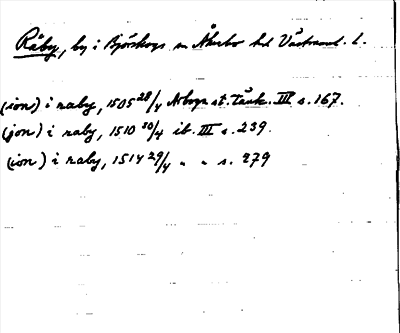 Råby, by i Björskogs sn Åkerbo hd Västmanl. l.
(ion) i raby, 1505 28/4 Arboga st. Tänk. III s. 167.
(jon) i raby, 1510 30/4 ib. III s. 239.
(ion) i raby, 1514 29/4 " " s. 279